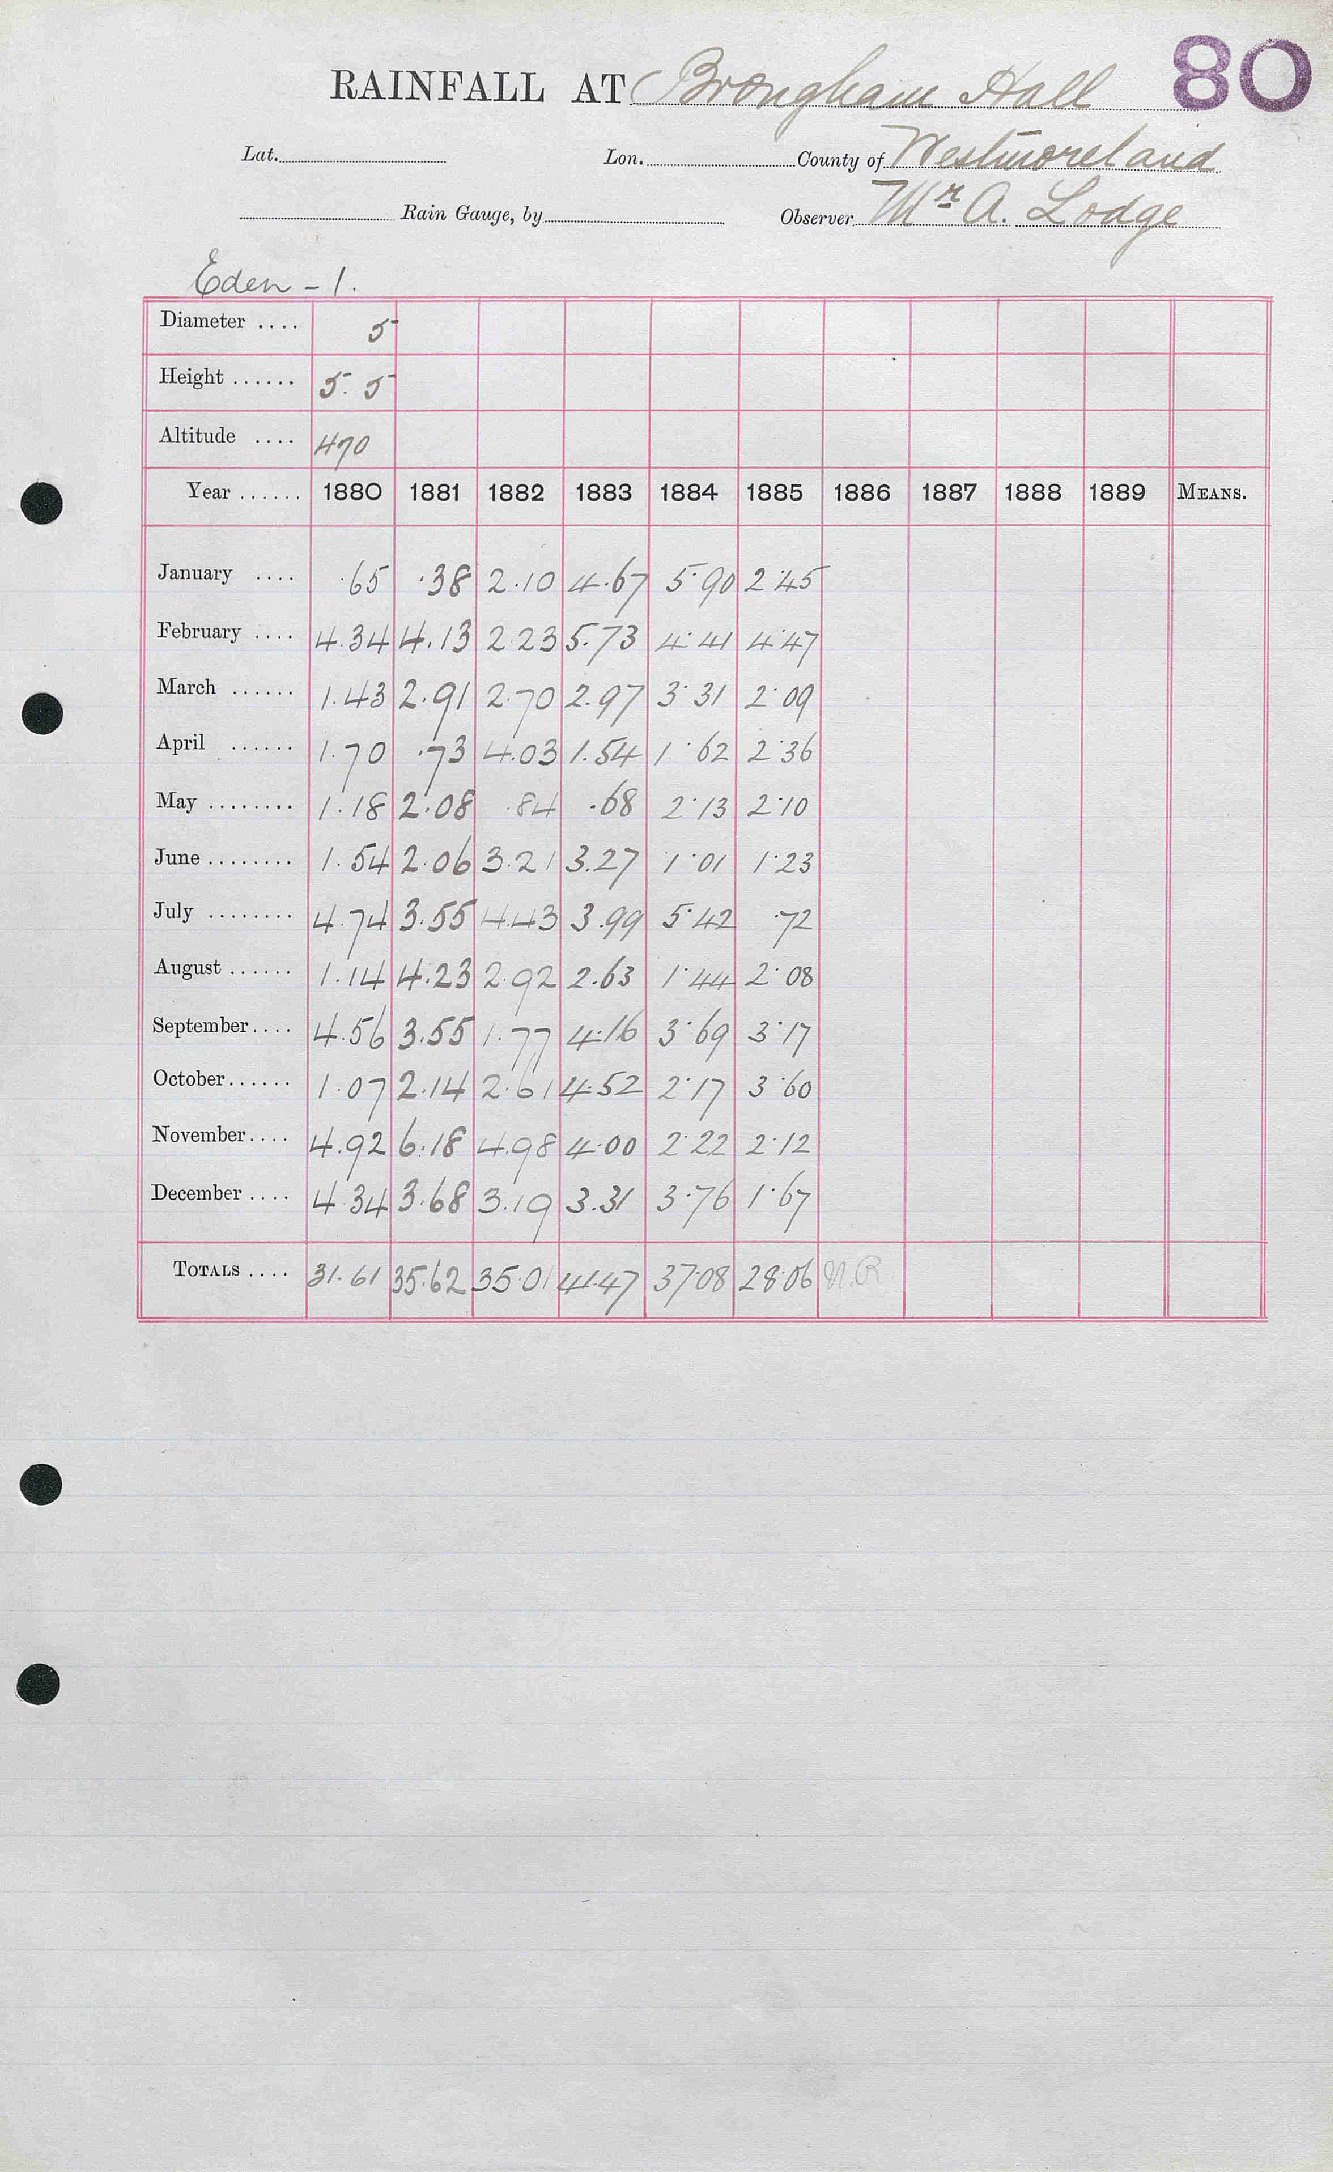 RAINFALL AT Brougham Hall 80
Lat. Lon. County of Westmoreland
Rain Gauge, by Observer Mr A. Lodge
Eden - 1.
Diameter .... 5
Height ...... 5.5
Altitude .... 470
Year ...... 1880 1881 1882 1883 1884 1885 1886 1887 1888 1889 MEANS.
January .... .65 .38 2.10 4.67 5.90 2.45
February .... 4.34 4.13 2.23 5.73 4.41 4.47
March ...... 1.43 2.91 2.70 2.97 3.31 2.09
April ...... 1.70 .73 4.03 1.54 1.62 2.36
May ........ 1.18 2.08 .84 .68 2.13 2.10
June ........ 1.54 2.06 3.21 3.27 1.01 1.23
July ........ 4.74 3.55 4.43 3.99 5.42 .72
August ...... 1.14 4.23 2.92 2.63 1.44 2.08
September.... 4.56 3.55 1.77 4.16 3.69 3.17
October...... 1.07 2.14 2.61 4.52 2.17 3.60
November.... 4.92 6.18 4.98 4.00 2.22 2.12
December .... 4.34 3.68 3.19 3.31 3.76 1.67
TOTALS .... 31.61 35.62 35.01 41.47 37.08 28.06 N.R